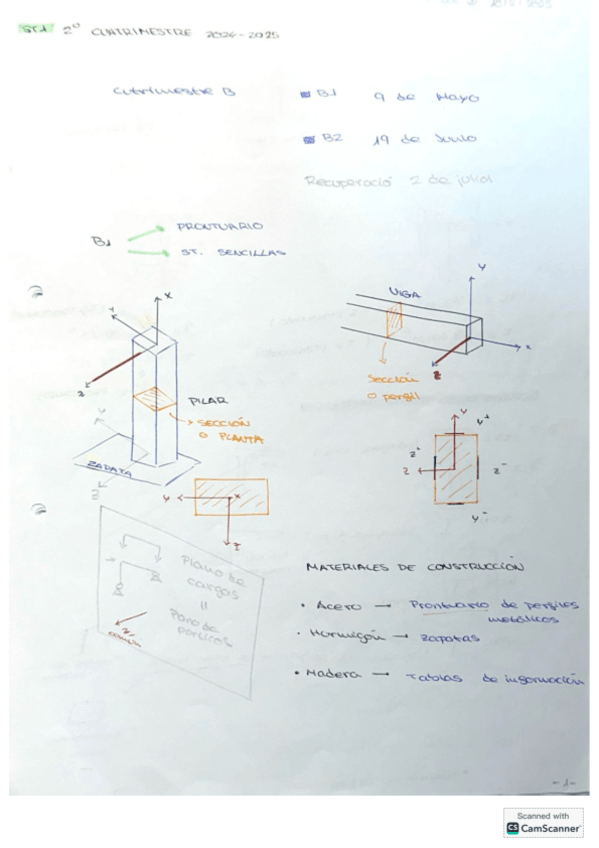 ST1 2º CUATRIMESTRE 2024-2025
Cutrimestre B
B1 9 de Mayo
B2 19 de Junio
Recuperació 2 de juliol
B1
PRONTUARIO
ST. SENCILLAS
X
Y
Z
PILAR
SECCIÓN
O PLANTA
ZAPATA
Y
Z
Y
X
Z
VIGA
Y
X
Z
Sección
o perfil
Y
Y+
Z+
Z
Z-
Y-
Plano de
cargas
=
Pano de
pórticos
Z
común
MATERIALES DE CONSTRUCCIÓN
• Acero → Prontuario de perfiles
metálicos
• Hormigón → zapatas
• Madera → Tablas de información
-1-
Scanned with
CS CamScanner